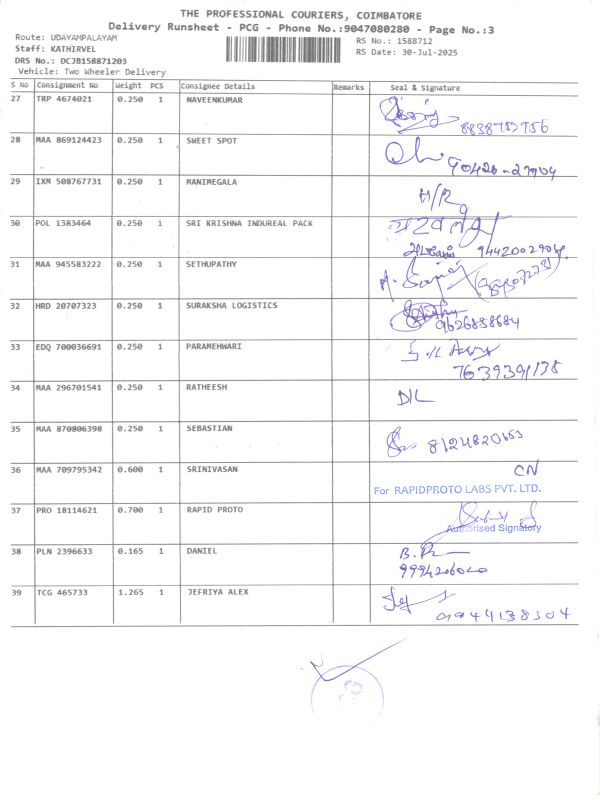 THE PROFESSIONAL COURIERS, COIMBATORE
Delivery Runsheet - PCG - Phone No.:9047080280 - Page No.:3
Route: UDAYAMPALAYAM
RS No.: 1588712
Staff: KATHIRVEL
RS Date: 30-Jul-2025
DRS No.: DCJB158871203
Vehicle: Two Wheeler Delivery
S No Consignment No Weight PCS Consignee Details Remarks Seal & Signature
27 TRP 4674021 0.250 1 NAVEENKUMAR
28 MAA 869124423 0.250 1 SWEET SPOT 90426-27904
29 IXM 508767731 0.250 1 MANIMEGALA
30 POL 1383464 0.250 1 SRI KRISHNA INDUREAL PACK
31 MAA 945583222 0.250 1 SETHUPATHY
32 HRD 20707323 0.250 1 SURAKSHA LOGISTICS 9626858684
33 EDQ 700036691 0.250 1 PARAMEHWARI
34 MAA 296701541 0.250 1 RATHEESH D/L
35 MAA 870806398 0.250 1 SEBASTIAN
36 MAA 709795342 0.600 1 SRINIVASAN CN
For RAPIDPROTO LABS PVT. LTD.
37 PRO 18114621 0.700 1 RAPID PROTO
Authorised Signatory
38 PLN 2396633 0.165 1 DANIEL
39 TCG 465733 1.265 1 JEFRIYA ALEX 9944138304